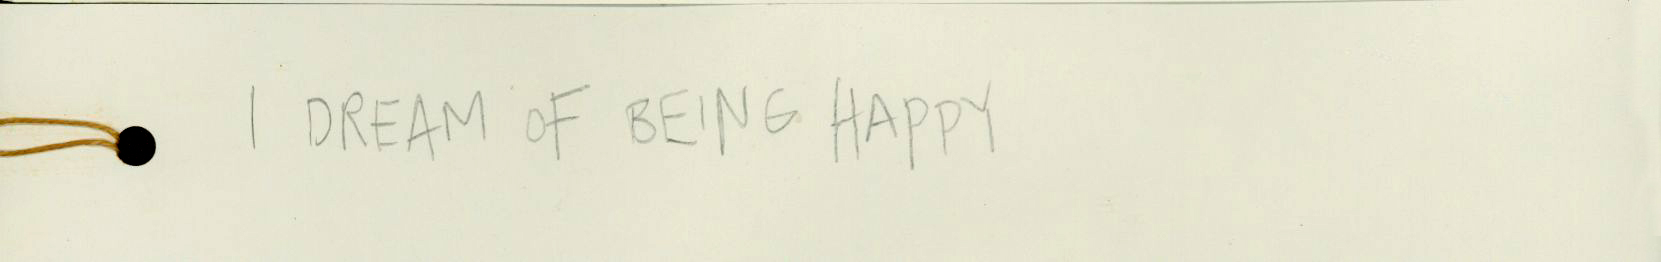 I DREAM OF BEING HAPPY